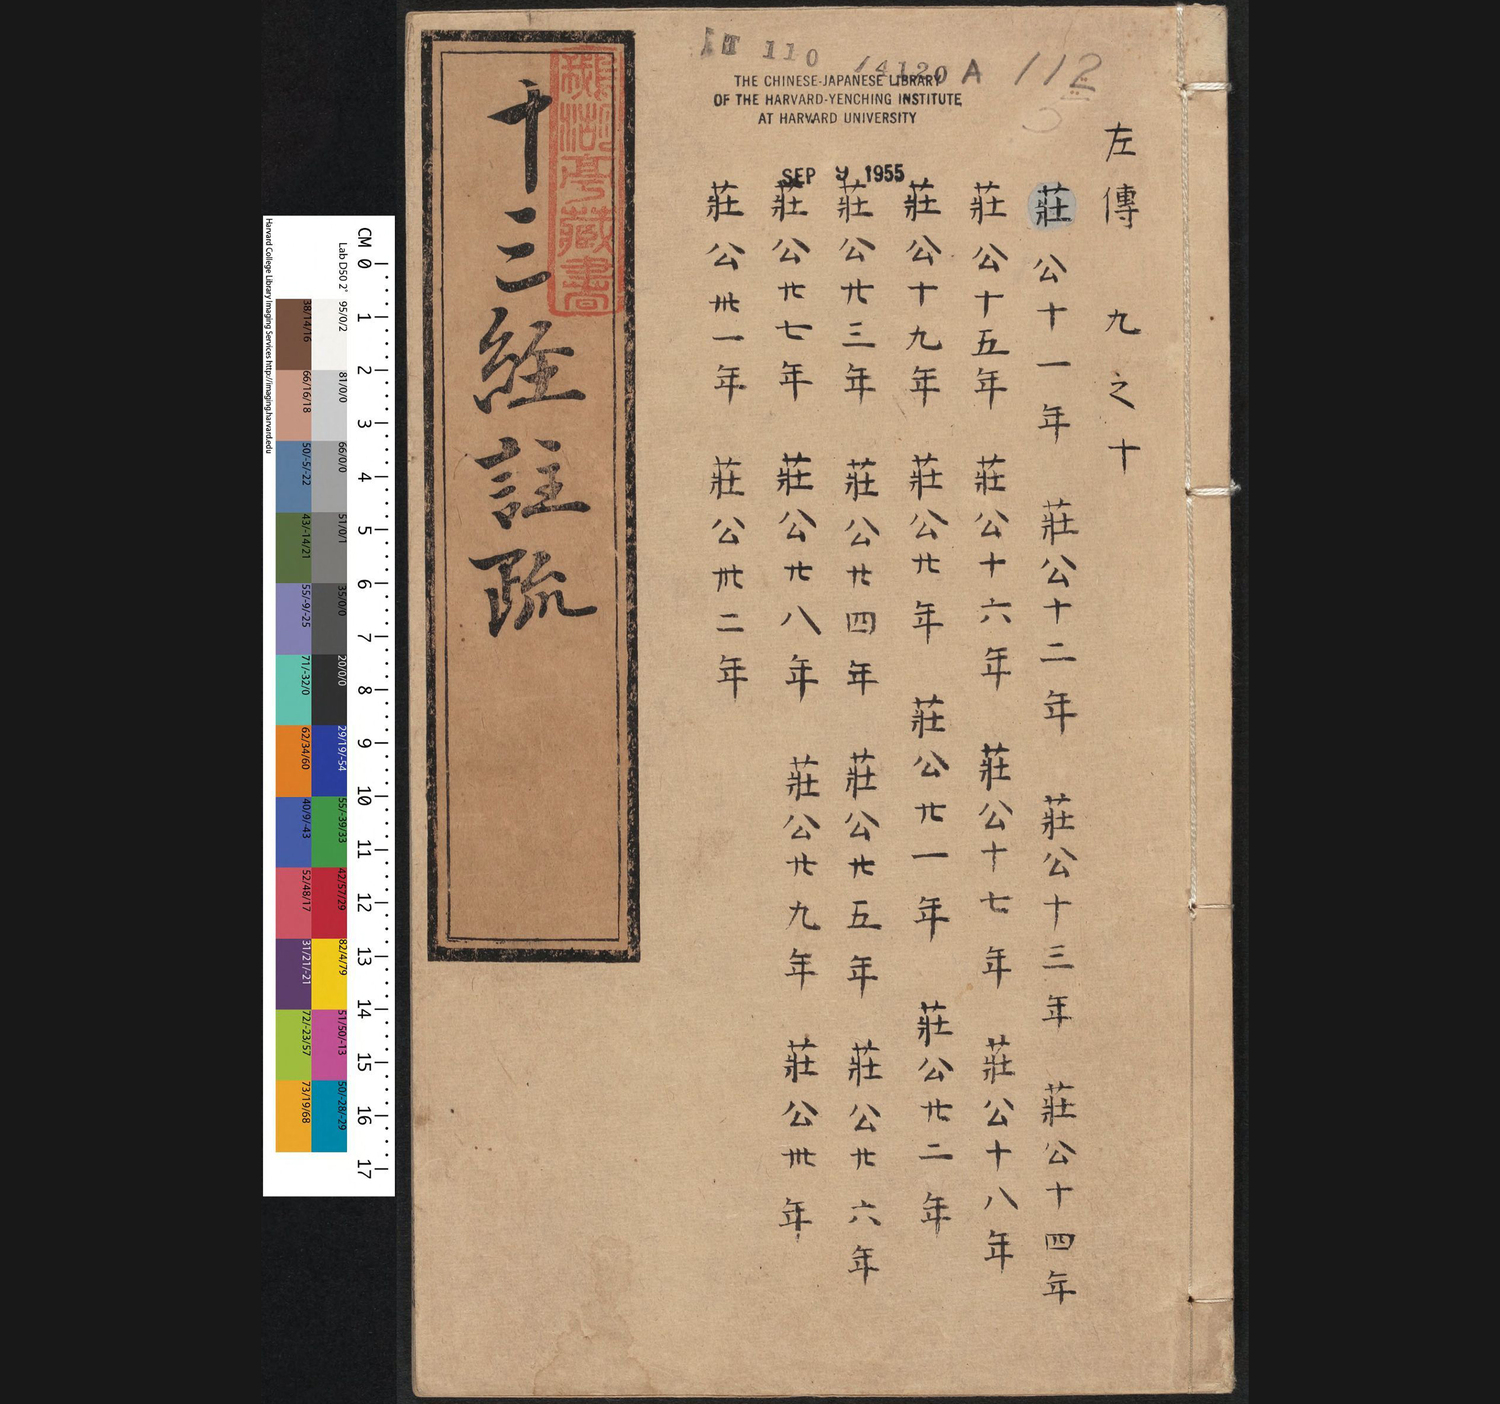 左傳 九之十
莊公十一年 莊公十二年 莊公十三年 莊公十四年
莊公十五年 莊公十六年 莊公十七年 莊公十八年
莊公十九年 莊公廿年 莊公廿一年 莊公廿二年
莊公廿三年 莊公廿四年 莊公廿五年 莊公廿六年
莊公廿七年 莊公廿八年 莊公廿九年 莊公卅年
莊公卅一年 莊公卅二年
十三經註疏
藏書
110
14120 A 112
THE CHINESE-JAPANESE LIBRARY
OF THE HARVARD-YENCHING INSTITUTE
AT HARVARD UNIVERSITY
SEP 9 1955
CM 0 1 2 3 4 5 6 7 8 9 10 11 12 13 14 15 16 17
Lab D50 2°
95/0/2
81/0/0
66/0/0
51/0/1
35/0/0
20/0/0
29/19/-54
55/-39/33
42/57/29
82/4/79
51/50/-13
50/-28/-29
38/14/16
66/16/18
50/-5/-22
43/-14/21
55/-9/-25
71/-32/0
62/34/60
40/9/-43
52/48/17
31/21/-21
72/-23/57
73/19/68
Harvard College Library Imaging Services http://imaging.harvard.edu